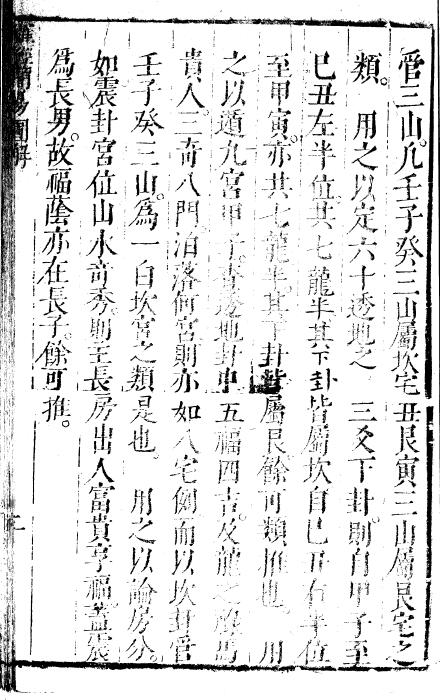 管三山凡壬子癸三山屬坎宅丑艮寅三山屬艮宅之
類。用之以定六十透地之三爻下卦則自甲子至
己丑左半位其七龍半其下卦皆屬坎自己丑右半位
至甲寅亦其七龍半其下卦皆屬艮餘可類推也。用
之以遁九宮甲子查透地卦中五福四吉及龍之祿馬
貴人三奇八門泊落何宮則亦如八宅例而以坎卦管
壬子癸三山爲一白坎宮之類是也。用之以論房分
如震卦宮位山水奇秀則主長房出人富貴享福蓋震
爲長男故福蔭亦在長子餘可推。
圖解